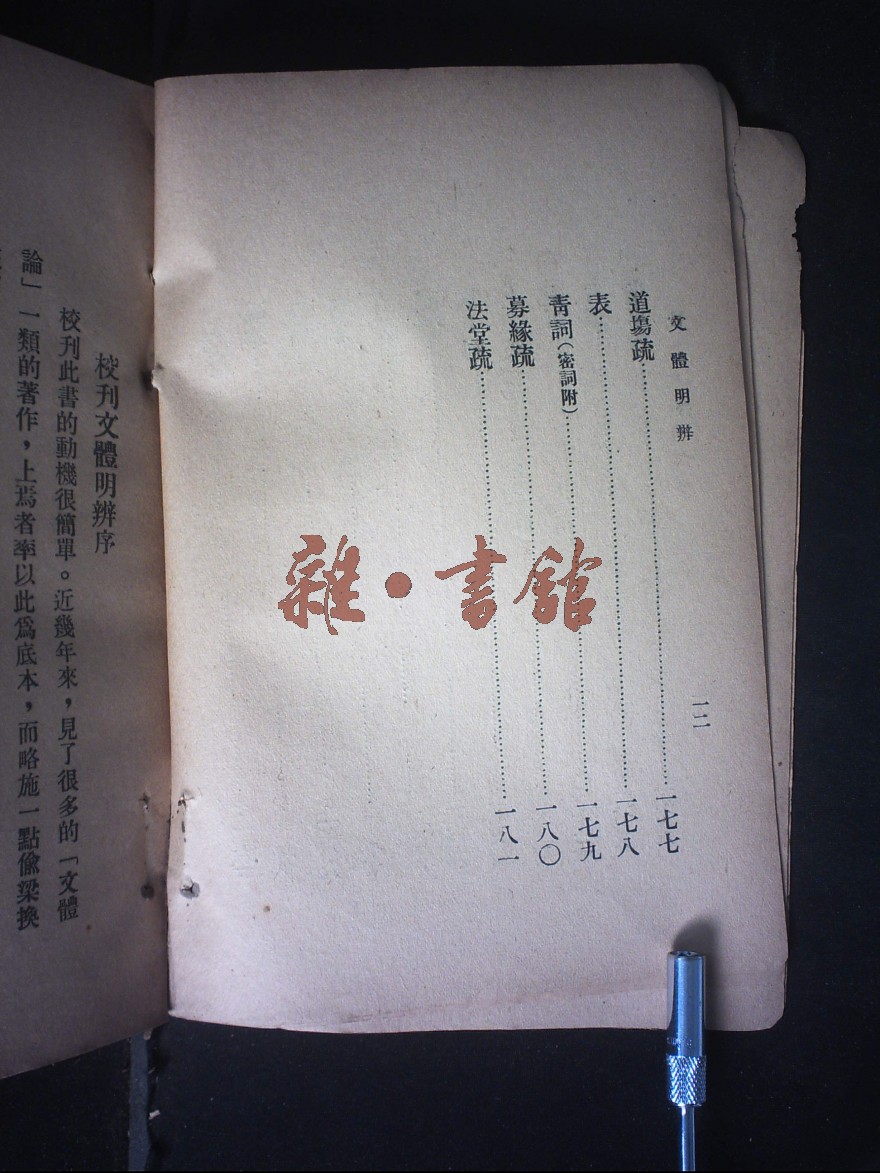 文體明辨
一二
道場疏……一七七
表……一七八
青詞（密詞附）……一七九
募緣疏……一八〇
法堂疏……一八一
雜·書館
校刊文體明辨序
校刊此書的動機很簡單。近幾年來，見了很多的「文體
論」一類的著作，上焉者率以此爲底本，而略施一點偷梁換